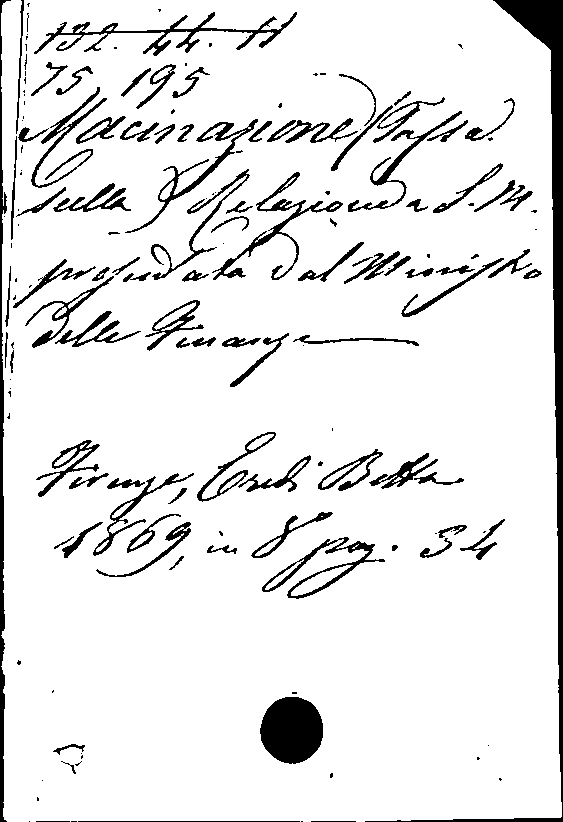 132. 44. 11
75 195
Macinazione (Tassa
sulla) Relazione a S. M.
presentata dal Ministro
delle Finanze
Firenze, Eredi Botta
1869, in 8° pag. 34